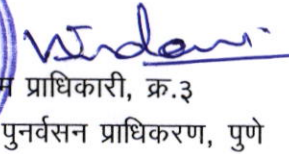 म प्राधिकारी, क्र.३
पुनर्वसन प्राधिकरण, पुणे